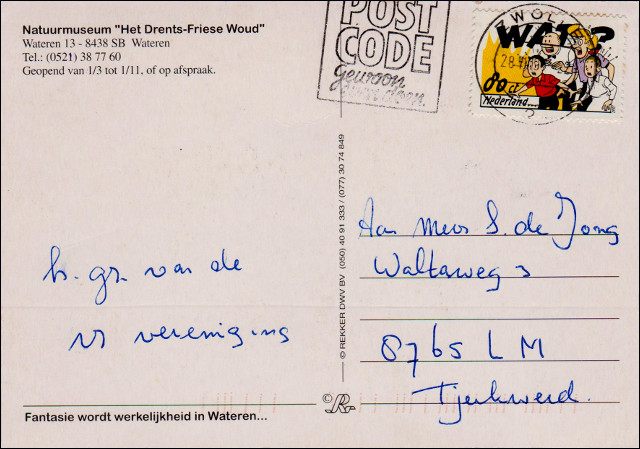 Natuurmuseum "Het Drents-Friese Woud"
Wateren 13 - 8438 SB Wateren
Tel.: (0521) 38 77 60
Geopend van 1/3 tot 1/11, of op afspraak.
POST
CODE
gewoon
doen.
ZWOLLE
28
WAT?
80 ct
Nederland...
© REKKER DWV BV (050) 40 91 333 / (077) 30 74 849
h. gr. van de
vereniging
Aan Mevr S. de Jong
Waltaweg 3
8765 LM
Tjerkwerd.
Fantasie wordt werkelijkheid in Wateren...
©R